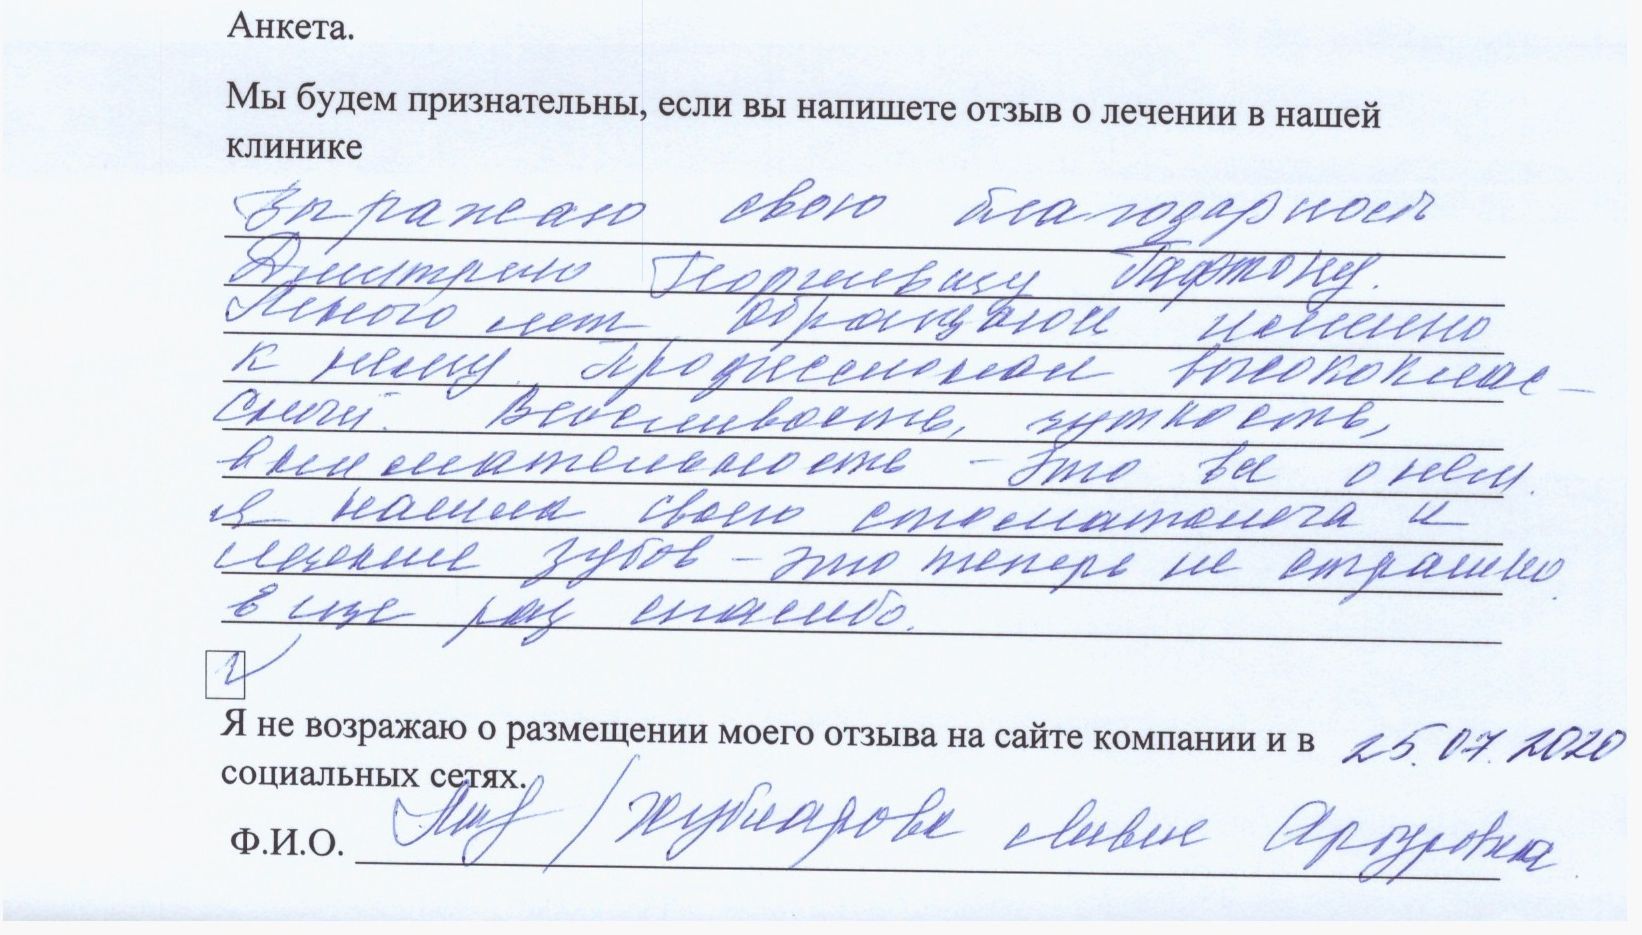 Анкета.
Мы будем признательны, если вы напишете отзыв о лечении в нашей
клинике
Выражаю свою благодарность
Дмитрию Георгиевичу
Много лет обращаюсь именно
к нему. Профессионал высококлас-
сный. Вежливость, чуткость,
внимательность – это все о нем.
Я нашла своего стоматолога и
лечение зубов – это теперь не страшно.
Еще раз спасибо.
Я не возражаю о размещении моего отзыва на сайте компании и в 25.07.2020
социальных сетях.
Ф.И.О.